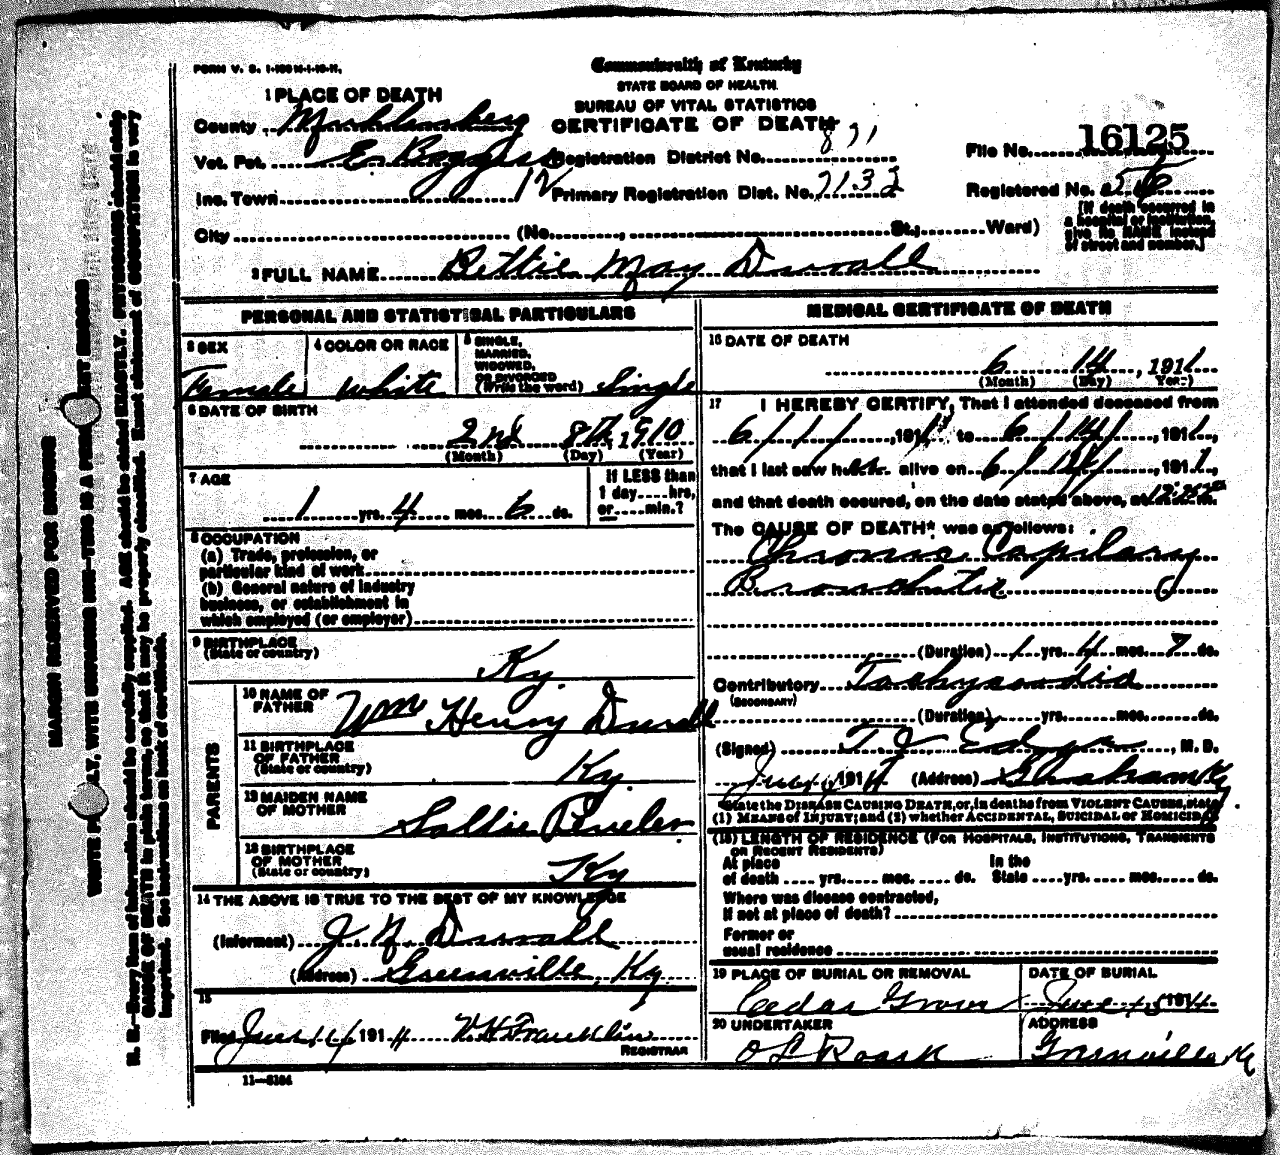 FORM V. S. 1-
Commonwealth of Kentucky
STATE BOARD OF HEALTH
BUREAU OF VITAL STATISTICS
CERTIFICATE OF DEATH
1 PLACE OF DEATH
County Muhlenberg
Vot. Pct. E. Boggess Registration District No. 871
File No. 16125
Inc. Town 12 Primary Registration Dist. No. 7132
Registered No.
[If death occurred in a hospital or institution, give its NAME instead of street and number.]
City (No. , St.; Ward)
2 FULL NAME Bettie May Duvall
PERSONAL AND STATISTICAL PARTICULARS
3 SEX Female
4 COLOR OR RACE White
5 SINGLE, MARRIED, WIDOWED, OR DIVORCED (Write the word) Single
6 DATE OF BIRTH
2nd 8th, 1910
(Month) (Day) (Year)
7 AGE
1 yrs. 4 mos. 6 ds.
If LESS than 1 day hrs, or min.?
8 OCCUPATION
(a) Trade, profession, or
particular kind of work
(b) General nature of industry
business, or establishment in
which employed (or employer)
9 BIRTHPLACE
(State or country) Ky.
PARENTS
10 NAME OF FATHER Wm Henry Duvall
11 BIRTHPLACE OF FATHER
(State or country) Ky.
12 MAIDEN NAME OF MOTHER Sallie
13 BIRTHPLACE OF MOTHER
(State or country) Ky
14 THE ABOVE IS TRUE TO THE BEST OF MY KNOWLEDGE
(Informant) J N Duvall
(Address) Greenville, Ky
15
Filed June 14 191 W. H. Franklin
REGISTRAR
11-5184
MEDICAL CERTIFICATE OF DEATH
16 DATE OF DEATH
6 14, 1911
(Month) (Day) (Year)
17 I HEREBY CERTIFY, That I attended deceased from
6/1/, 1911 to 6/14/, 1911,
that I last saw her alive on 6/14/, 1911,
and that death occured, on the date stated above, at m.
The CAUSE OF DEATH* was as follows:
Chronic Capilary
Bronchitis
(Duration) 1 yrs. 4 mos. 7 ds.
Contributory Tachycardia
(SECONDARY)
(Duration) yrs. mos. ds.
(Signed) T J , M. D.
191 (Address) Graham Ky
*State the DISEASE CAUSING DEATH, or, in deaths from VIOLENT CAUSES, state
(1) MEANS OF INJURY; and (2) whether ACCIDENTAL, SUICIDAL or HOMICIDAL
(18) LENGTH OF RESIDENCE (FOR HOSPITALS, INSTITUTIONS, TRANSIENTS
OR RECENT RESIDENTS)
At place of death yrs. mos. ds. In the State yrs. mos. ds.
Where was disease contracted,
If not at place of death?
Former or
usual residence
19 PLACE OF BURIAL OR REMOVAL Cedar Grove
DATE OF BURIAL June 15 191
20 UNDERTAKER O L Roark
ADDRESS Greenville Ky
MARGIN RESERVED FOR BINDING
WRITE PLAINLY, WITH UNFADING INK—THIS IS A PERMANENT RECORD
N. B.—Every item of information should be carefully supplied. AGE should be stated EXACTLY. PHYSICIANS should state
CAUSE OF DEATH in plain terms, so that it may be properly classified. Exact statement of OCCUPATION is very
important. See instructions on back of certificate.